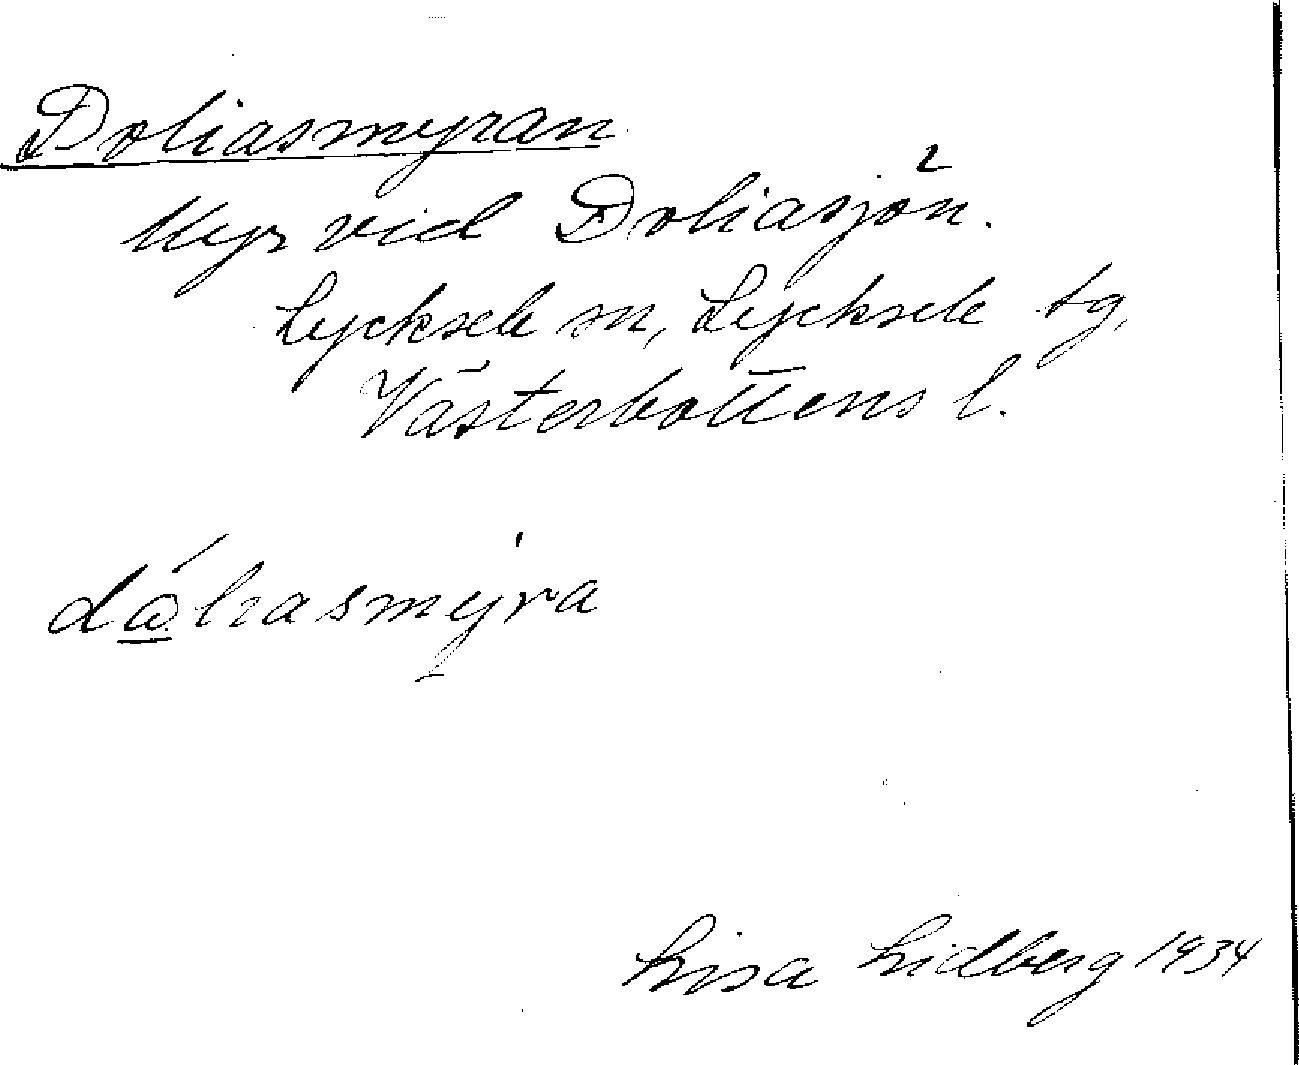 Doliasmyran
Myr vid Doliasjön.
Lycksele sn, Lycksele tg,
Västerbottens l.
då̱liasmy̱ra
Lisa Lidberg 1934